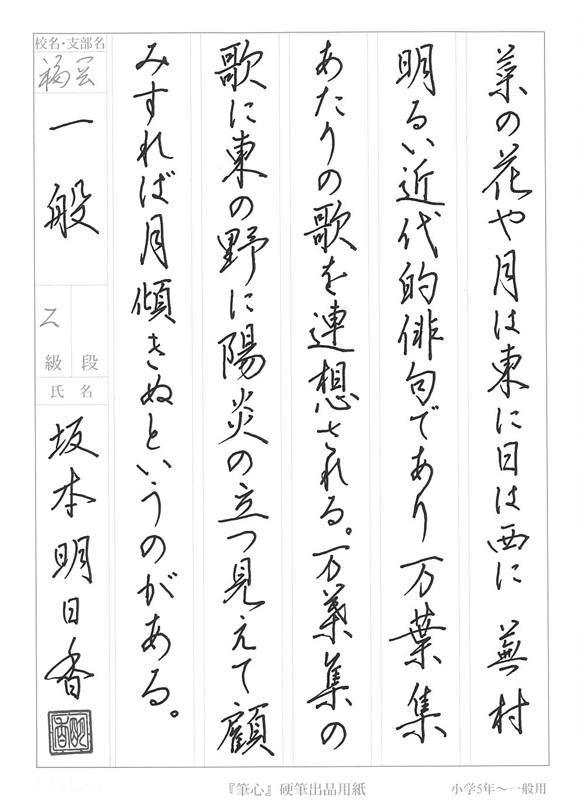 菜の花や月は東に日は西に 蕪村
明るい近代的俳句であり万葉集
あたりの歌を連想される。万葉集の
歌に東の野に陽炎の立つ見えて顧
みすれば月傾きぬというのがある。
校名・支部名
福岡
一般
段
級
氏名
坂本明日香
『筆心』硬筆出品用紙
小学5年〜一般用